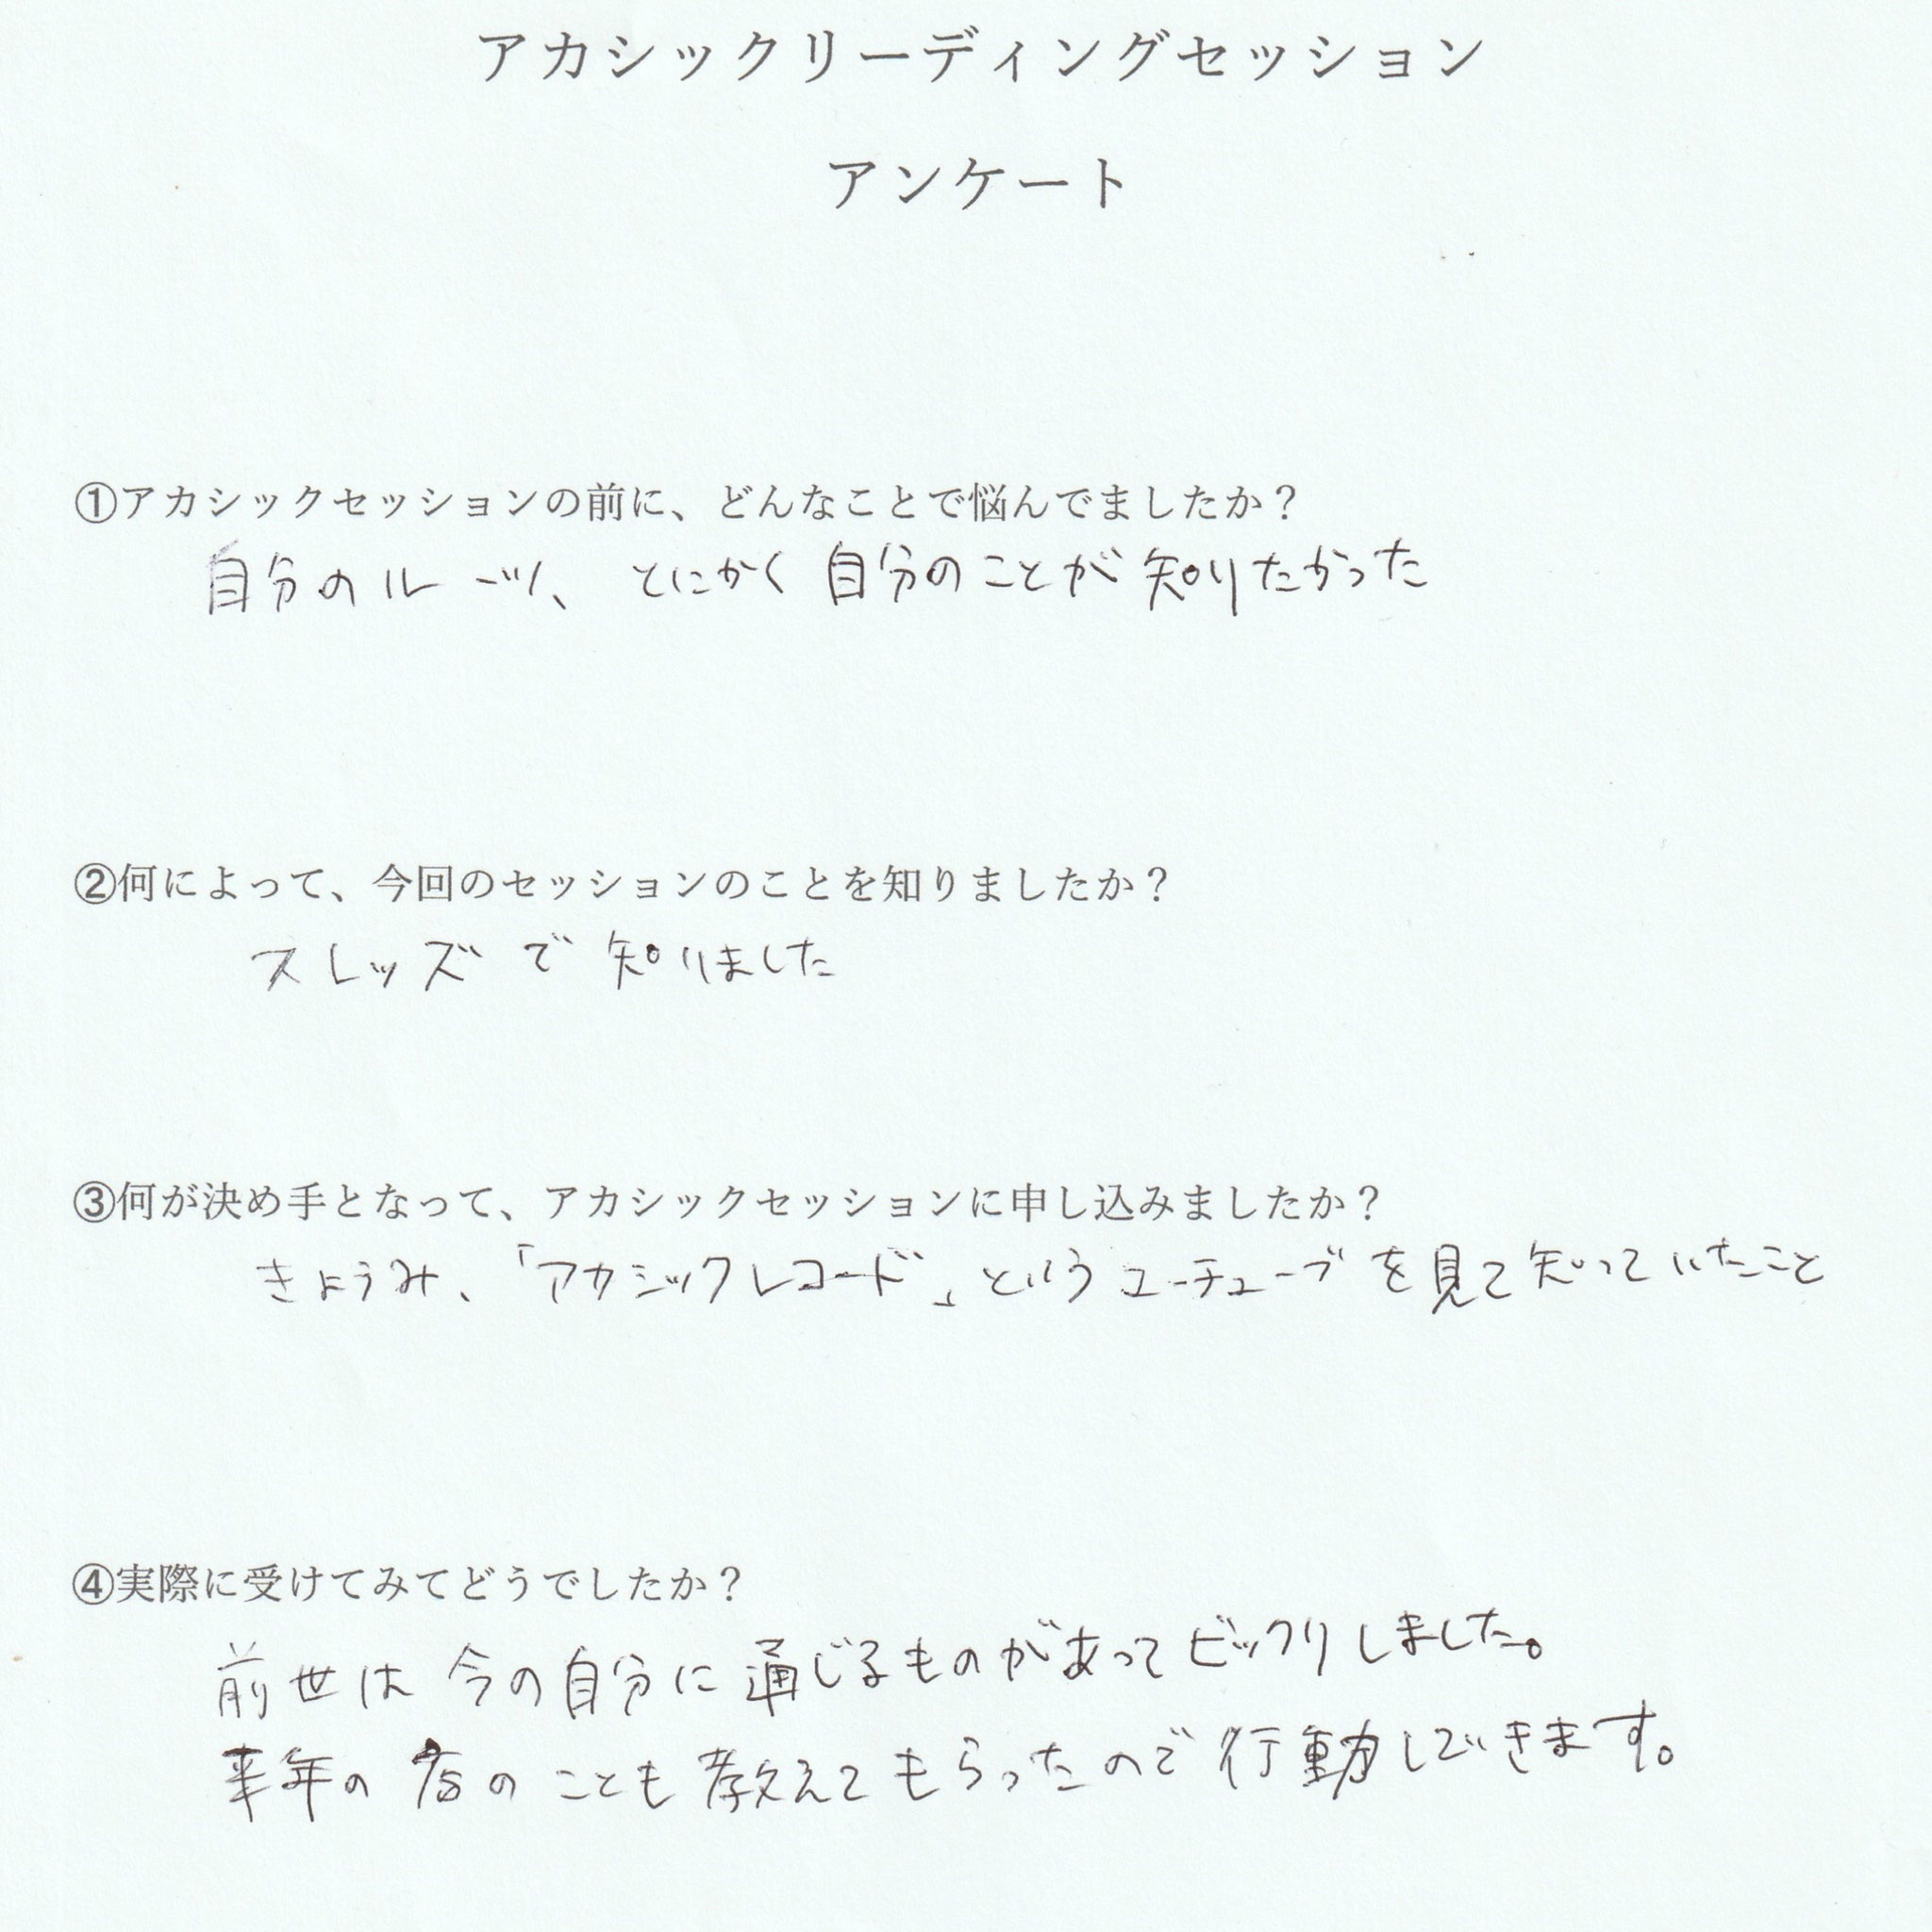 アカシックリーディングセッション
アンケート
①アカシックセッションの前に、どんなことで悩んでましたか？
自分のルーツ、とにかく自分のことが知りたかった
②何によって、今回のセッションのことを知りましたか？
スレッズで知りました
③何が決め手となって、アカシックセッションに申し込みましたか？
きょうみ、「アカシックレコード」というユーチューブを見て知っていたこと
④実際に受けてみてどうでしたか？
前世は今の自分に通じるものがあってビックリしました。
来年の店のことも教えてもらったので行動していきます。